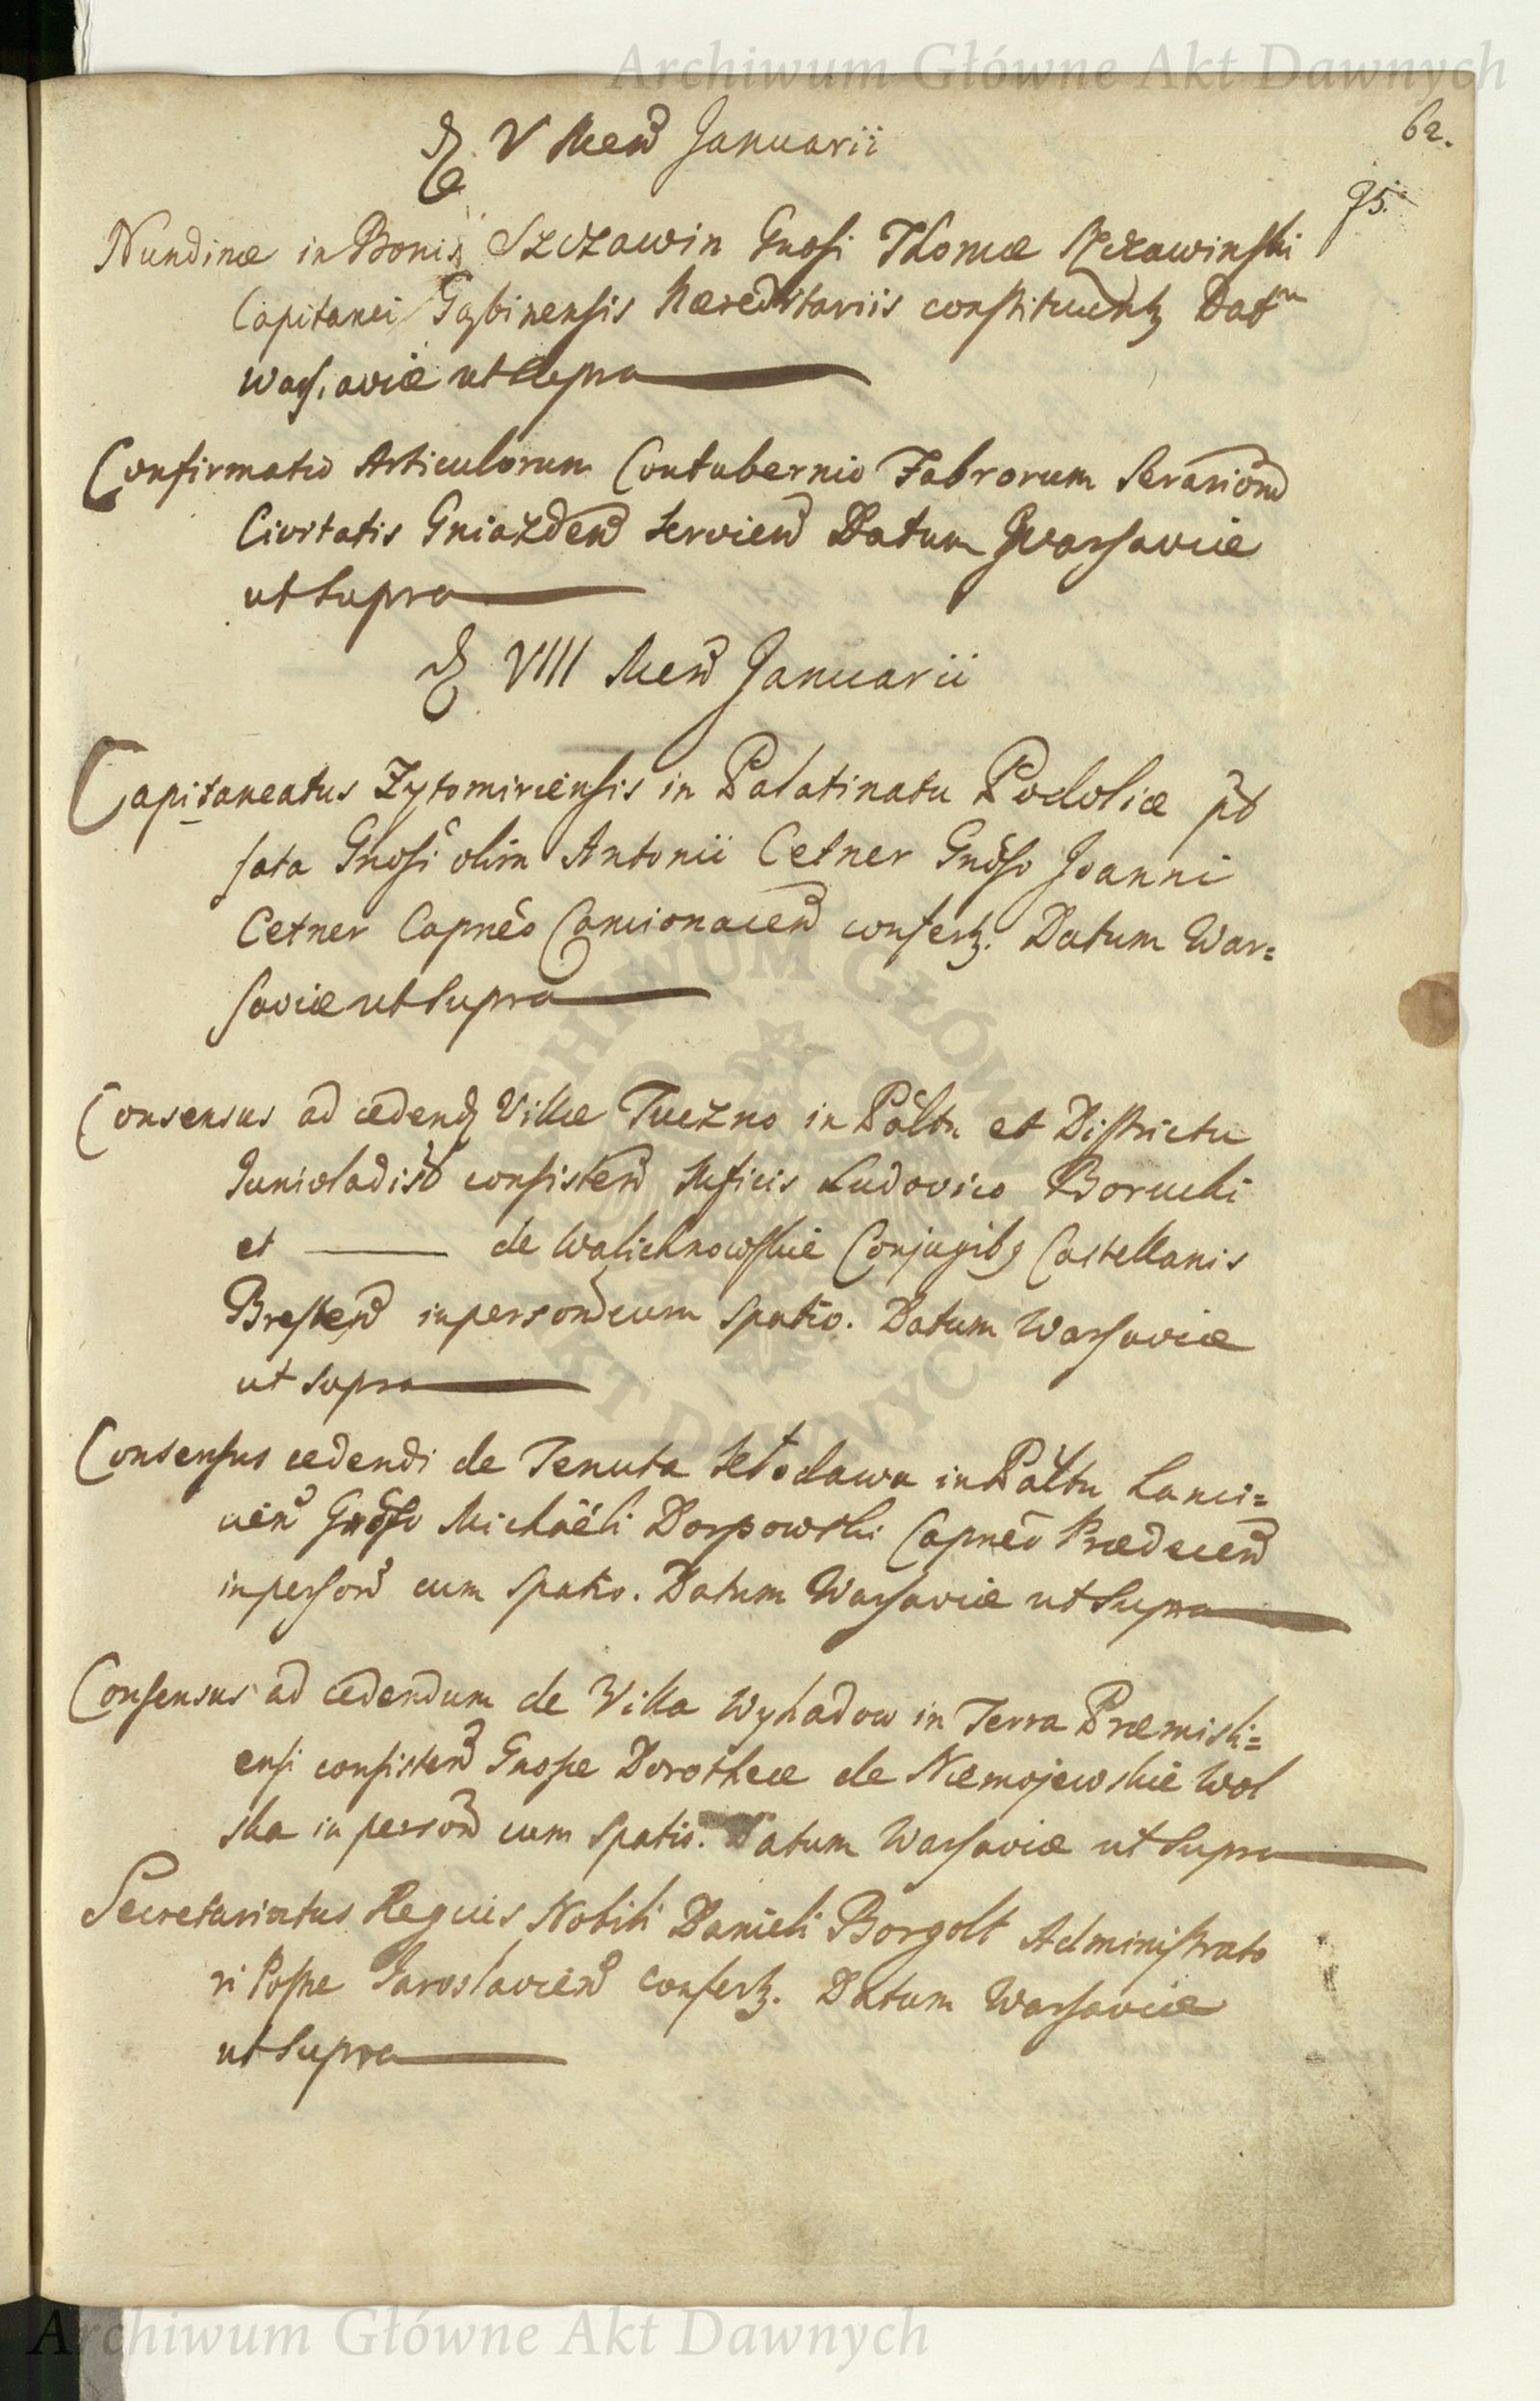 Archiwum Główne Akt Dawnych
62.
75.
V Men Januarii
Nundinæ in Bonis Szczawin Gnosi Thomæ Szczawinski
Capitanei Gąbinensis Hæreditariis constituuntz Datm
Warsaviæ ut supra
Confirmatio Articulorum Contubernio Fabrorum Serariom
Civitatis Gniazden servien Datum Warsaviæ
ut supra
VIII Men Januarii
Capitaneatus Zytomiriensis in Palatinatu Podoliæ pt
fata Gnosi olim Antonii Cetner Gnoso Joanni
Cetner Capneo Camionacen confertz. Datum War=
saviæ ut supra
Consensus ad cedend Villæ Tuczno in Paltu et Districtu
Junivladisl consisten Mficis Ludovico Borucki
et ——— de Walichnowskie Conjugibz Castellanis
Bresten in person cum spatio. Datum Warsaviæ
ut supra
Consensus cedendi de Tenuta Kłodawa in Paltu Lanci=
cien Gnoso Michaëli Dorpowski Capneo Prædecen
in person cum spatio. Datum Warsaviæ ut supra
Consensus ad cedendum de Villa Wyhadow in Terra Præmisli=
ensi consisten Gnosæ Dorotheæ de Niemojewskie Wol
ska in person cum spatio. Datum Warsaviæ ut supra
Secretariatus Regius Nobili Danieli Borgolt Administrato
ri Postæ Jaroslavien confertz. Datum Warsaviæ
ut supra
Archiwum Główne Akt Dawnych